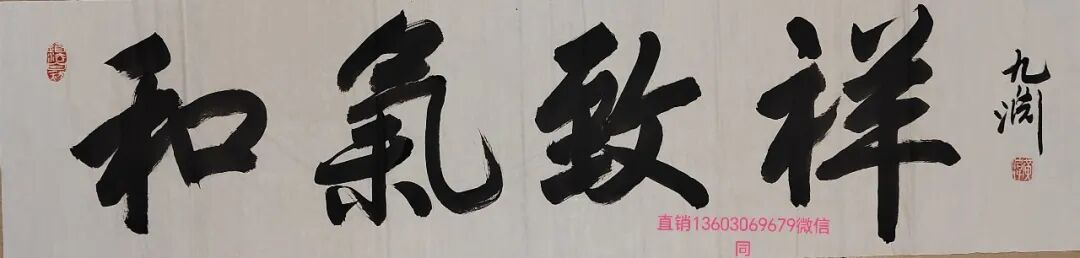 和氣致祥
九渊
直销13603069679微信
同